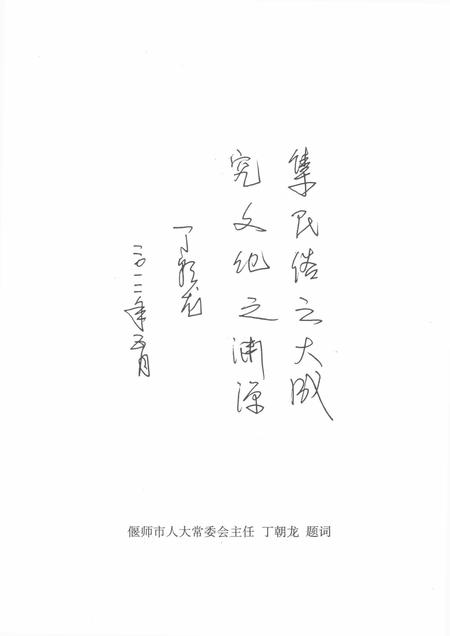 集民俗之大成
究文化之渊源
丁朝龙
二〇一二年五月
偃师市人大常委会主任 丁朝龙 题词